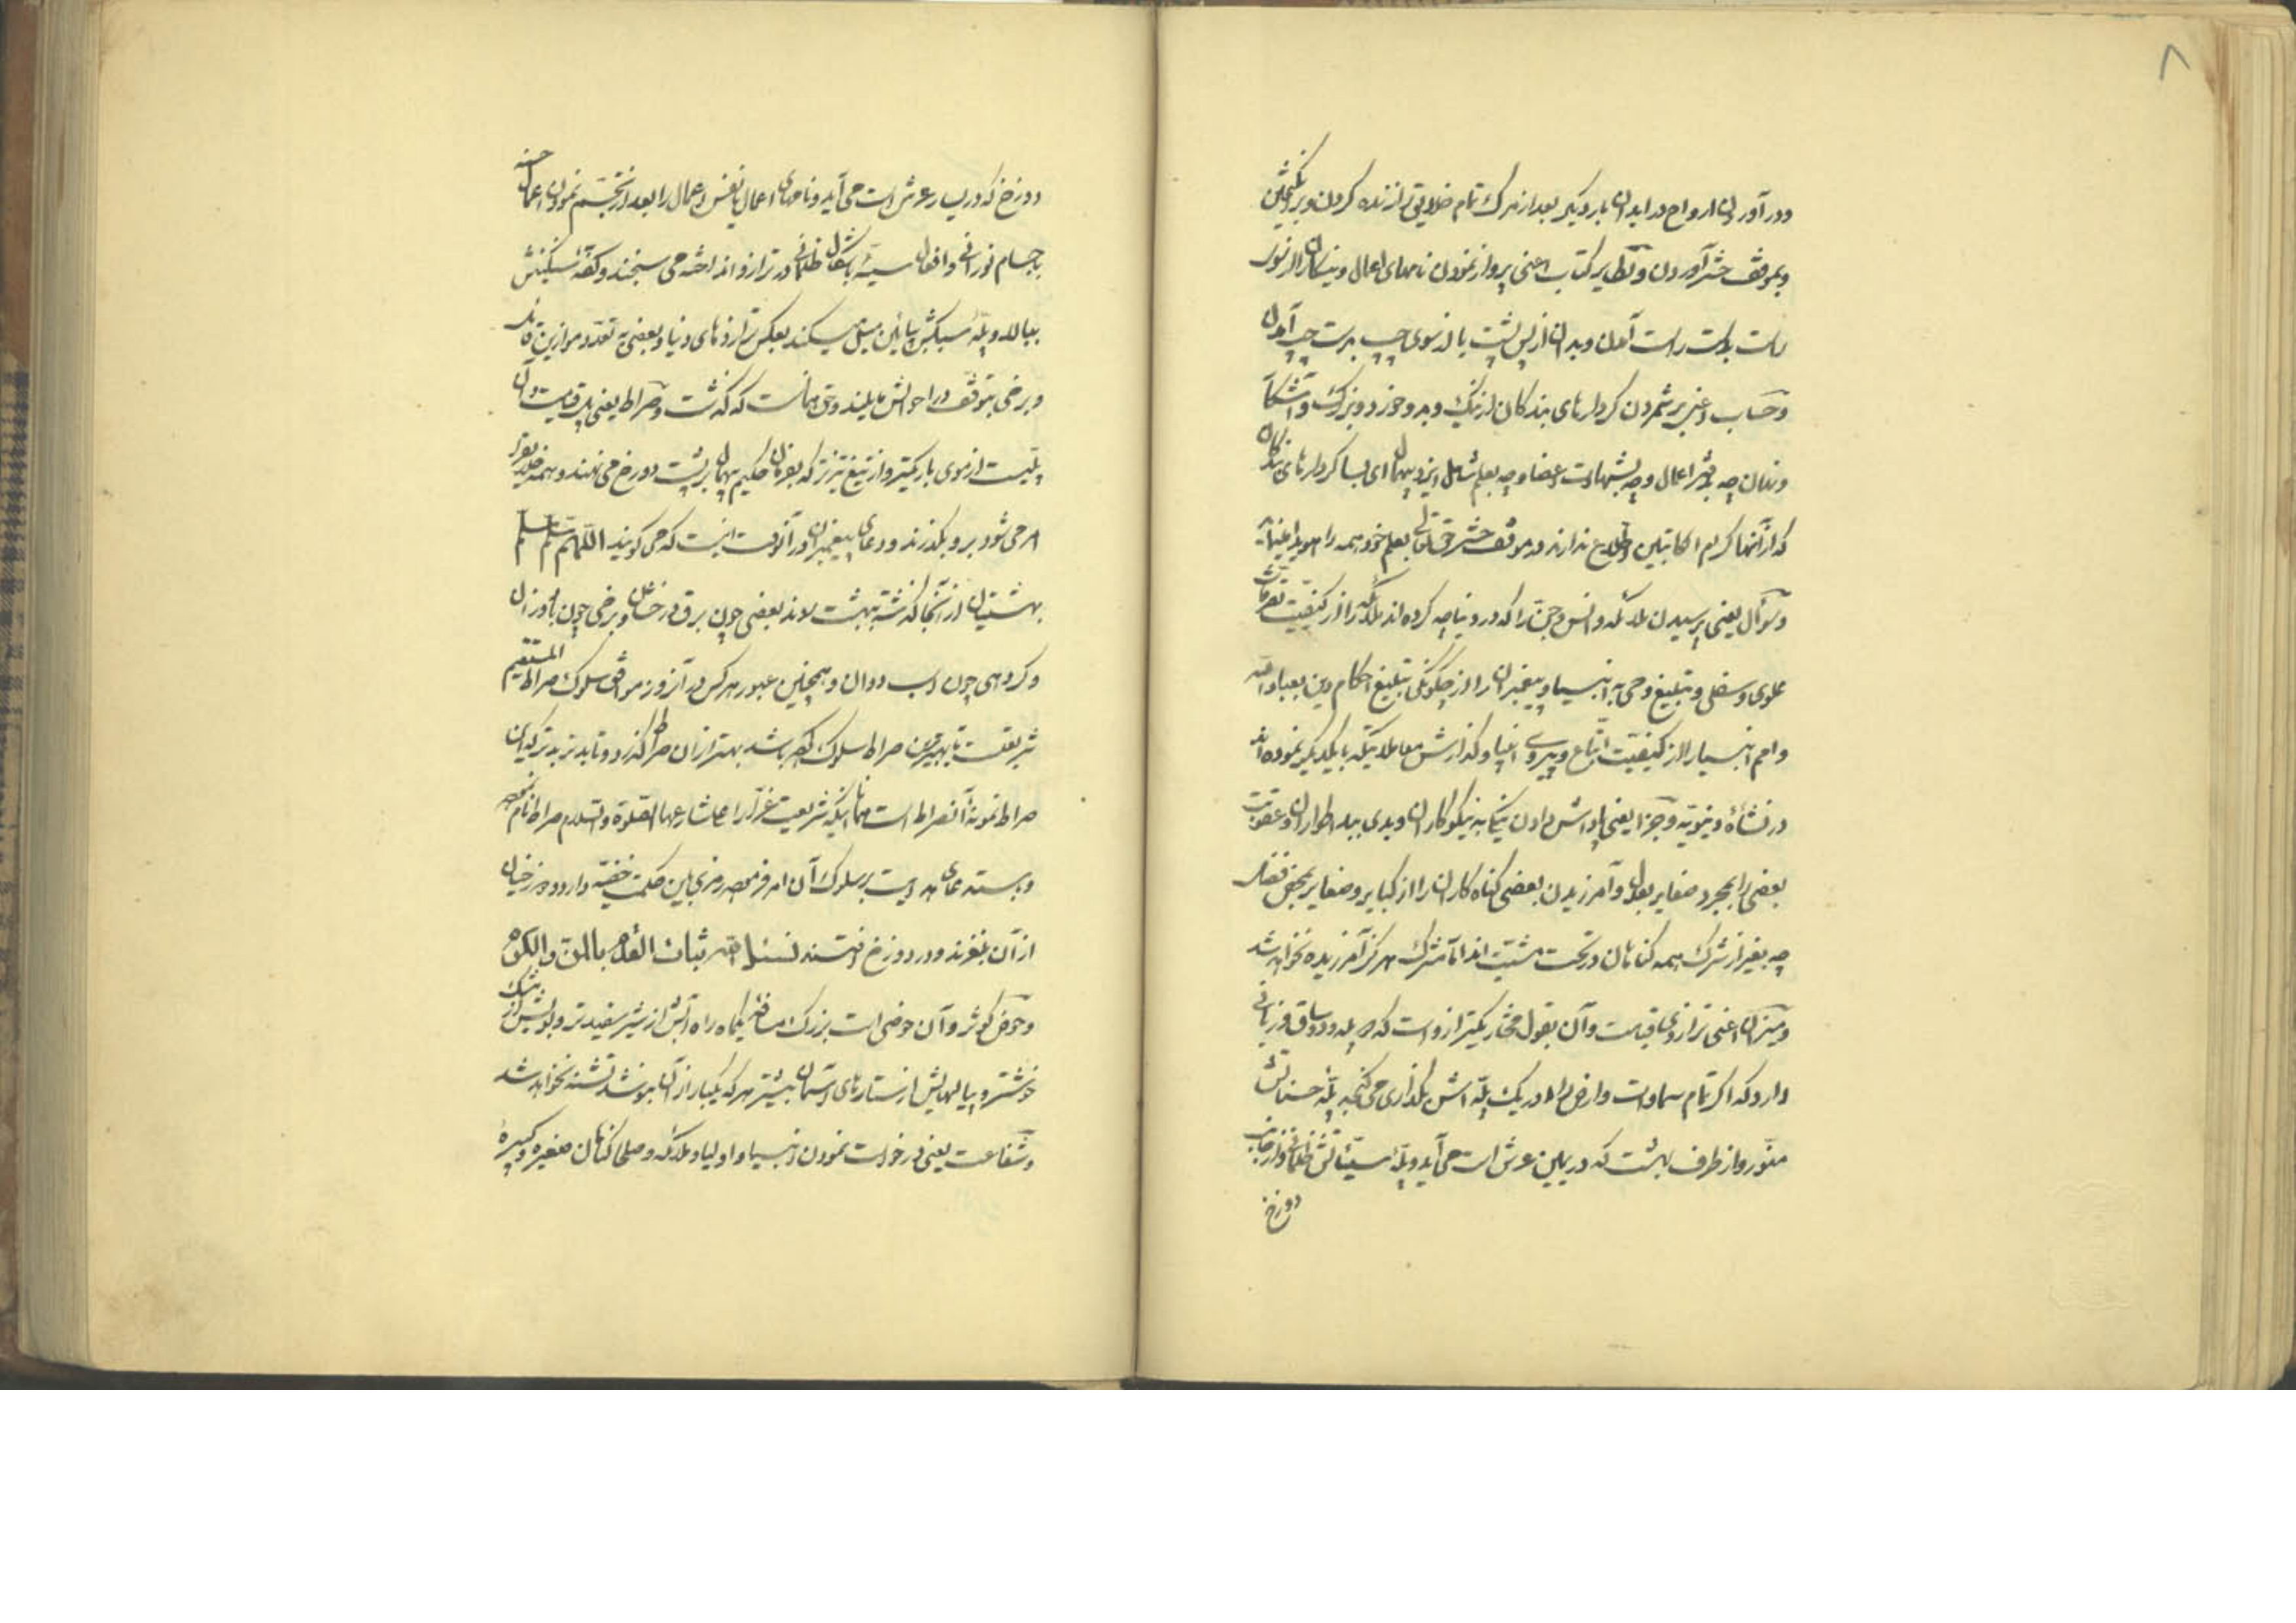 ۸
ودر آوردن ارواح در ابدان بار دیکر بعد از مرک تمام خلایق را زنده کردن و برانکیختن
و بموقف حشر آوردن و تطایر کتاب اعنی پرواز نمودن نامهای اعمال و نیکان را از سوی
راست بدست راست آمدن و بدان از پس پشت یا از سوی چپ بدست چپ آمدن
و حساب اعنی بر شمردن کردارهای بندکان از نیک و بد و خورد و بزرک و آشکارا
و نهان چه بدفتر اعمال و چه بشهادت اعضا و چه بعلم شامل ایزد بیهمال ای بسا کردارهای بندکان
که از آنها کرام الکاتبین اطلاع ندارند در موقف حشر حق تعالی بعلم خود همه را هویدا
و سؤال یعنی پرسیدن ملائکه و انس و جن را که در دنیا چه کرده اند ملائکه را از کیفیت تصرفات
علوی و سفلی و تبلیغ وحی به انبیا و پیغمبران را از چکونکی تبلیغ احکام دین بعباد الله
و امم انبیا را از کیفیت اتباع و پیروی انبیا و کذارش معاملاتیکه با یکدیکر نموده اند
در نشأه دنیویه و جزا یعنی پاداش دادن نیکی به نیکوکاران و بدی ببد اطواران و عقوبت
بعضی را بمجرد صغایر بعدل و آمرزیدن بعضی کناه کاران را از کبایر و صغایر بمحض فضل
چه بغیر از شرک همه کناهان در تحت مشیت اند اما مشرک هرکز آمرزیده نخواهد شد
و میزان اعنی ترازوی قیامت و آن بقول مختار یکترازو است که دو پله و دو ساق و زبانی
دارد که اکر تمام سماوات و ارض را در یک پله اش بکذاری می کنجد پله حسناتش
منور و از طرف بهشت که در یمین عرش است می آید و پله سیئاتش ظلمانی و از جانب
دوزخ
دوزخ که در یسار عرش است می آید و نامهای اعمال یا نفس اعمال را بعد از تجسم نمودن اعمال حسنه
باجسام نورانی و افعال سیئه باشکال ظلمانی در ترازو انداخته می سنجند و کفه سنکینش
ببالا و پله سبکش بپائین میل میکند بعکس ترازوهای دنیا و بعضی به تعدد موازین قائل
و برخی بتوقف در احوالش مایلند و حق همانست که کذشت و صراط یعنی پل قیامت و آن
پلیست از موی باریکتر و از تیغ تیزتر که بفرمان حکیم بیهمال بر پشت دوزخ می نهند و همه خلایق را
امر می شود بر او بکذرند و دعای پیغمبران در آنوقت اینست که می کویند اللهم سلم سلم
بهشتیان از آنجا کذشته ببهشت روند بعضی چون برق درخشان و برخی چون باد وزان
و کروهی چون اسب دوان و همچنین عبور هر کس در آنروز موافق سلوک صراط المستقیم
شریعت تا بهترین صراط سلوک که باشد بهتر از آن صراط کذرد و تا بد تر بدتر که این
صراط نمونه آنصراط است همانا اینکه شریعت غرا را علی شارعها الصلوة والسلام صراط نام
از آن بلغزند و در دوزخ افتند نسئل الله ثبات القدم بالمن والکرم
و حوض کوثر و آن حوضی است بزرک مسافه یکماه راه آبش از شیر سفیدتر و بویش از مشک
خوشتر و پیالهایش از ستارهای آسمان بیشتر هر که یکبار از آن بنوشد تشنه نخواهد شد
و شفاعت یعنی درخواست نمودن انبیا و اولیا و ملائکه و صلحا کناهان صغیره و کبیره